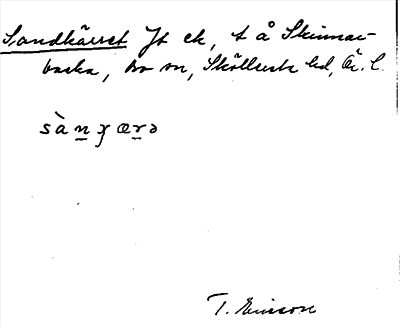 Sandkärret Jt ek, t å Skinnar-
backa, hv sn, Sköllersta hd, Ör. l.
sàn̠ɣær̠ə
T. Ericson